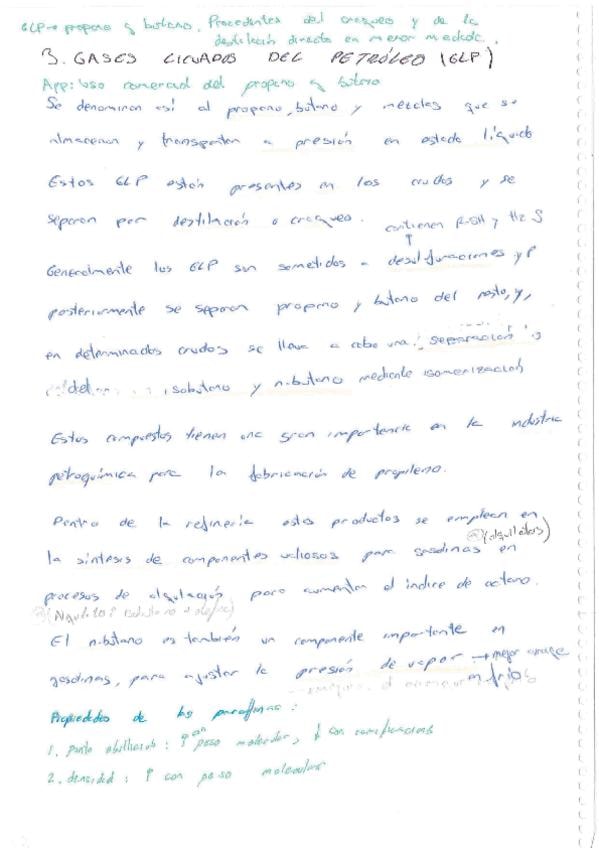 GLP→ propano y butano. Procedentes del craqueo y de la
destilación directa en menor medida.
3. GASES LICUADOS DEL PETRÓLEO (GLP)
App: Uso comercial del propano y butano
Se denominan así al propano, butano y mezclas que se
almacenan y transportan a presión en estado líquido
Estos GLP están presentes en los crudos y se
separan por destilación o craqueo. contienen R-SH y H2S
↑
Generalmente los GLP son sometidos a desulfuraciones y
posteriormente se separan propano y butano del resto, y,
en determinados crudos se lleva a cabo una separación
del isobutano y n-butano mediante isomerización
Estos compuestos tienen una gran importancia en la industria
petroquímica para la fabricación de propileno.
Dentro de la refinería estos productos se emplean en
(alquilatos)
la síntesis de componentes valiosos para gasolinas en
procesos de alquilación para aumentar el índice de octano.
El n-butano es también un componente importante en
gasolinas, para ajustar la presión de vapor → mejor arranque
en frío
Propiedades de las parafinas:
1. punto ebullición: ↑ con peso molecular, ↓ con ramificaciones
2. densidad: ↑ con peso molecular